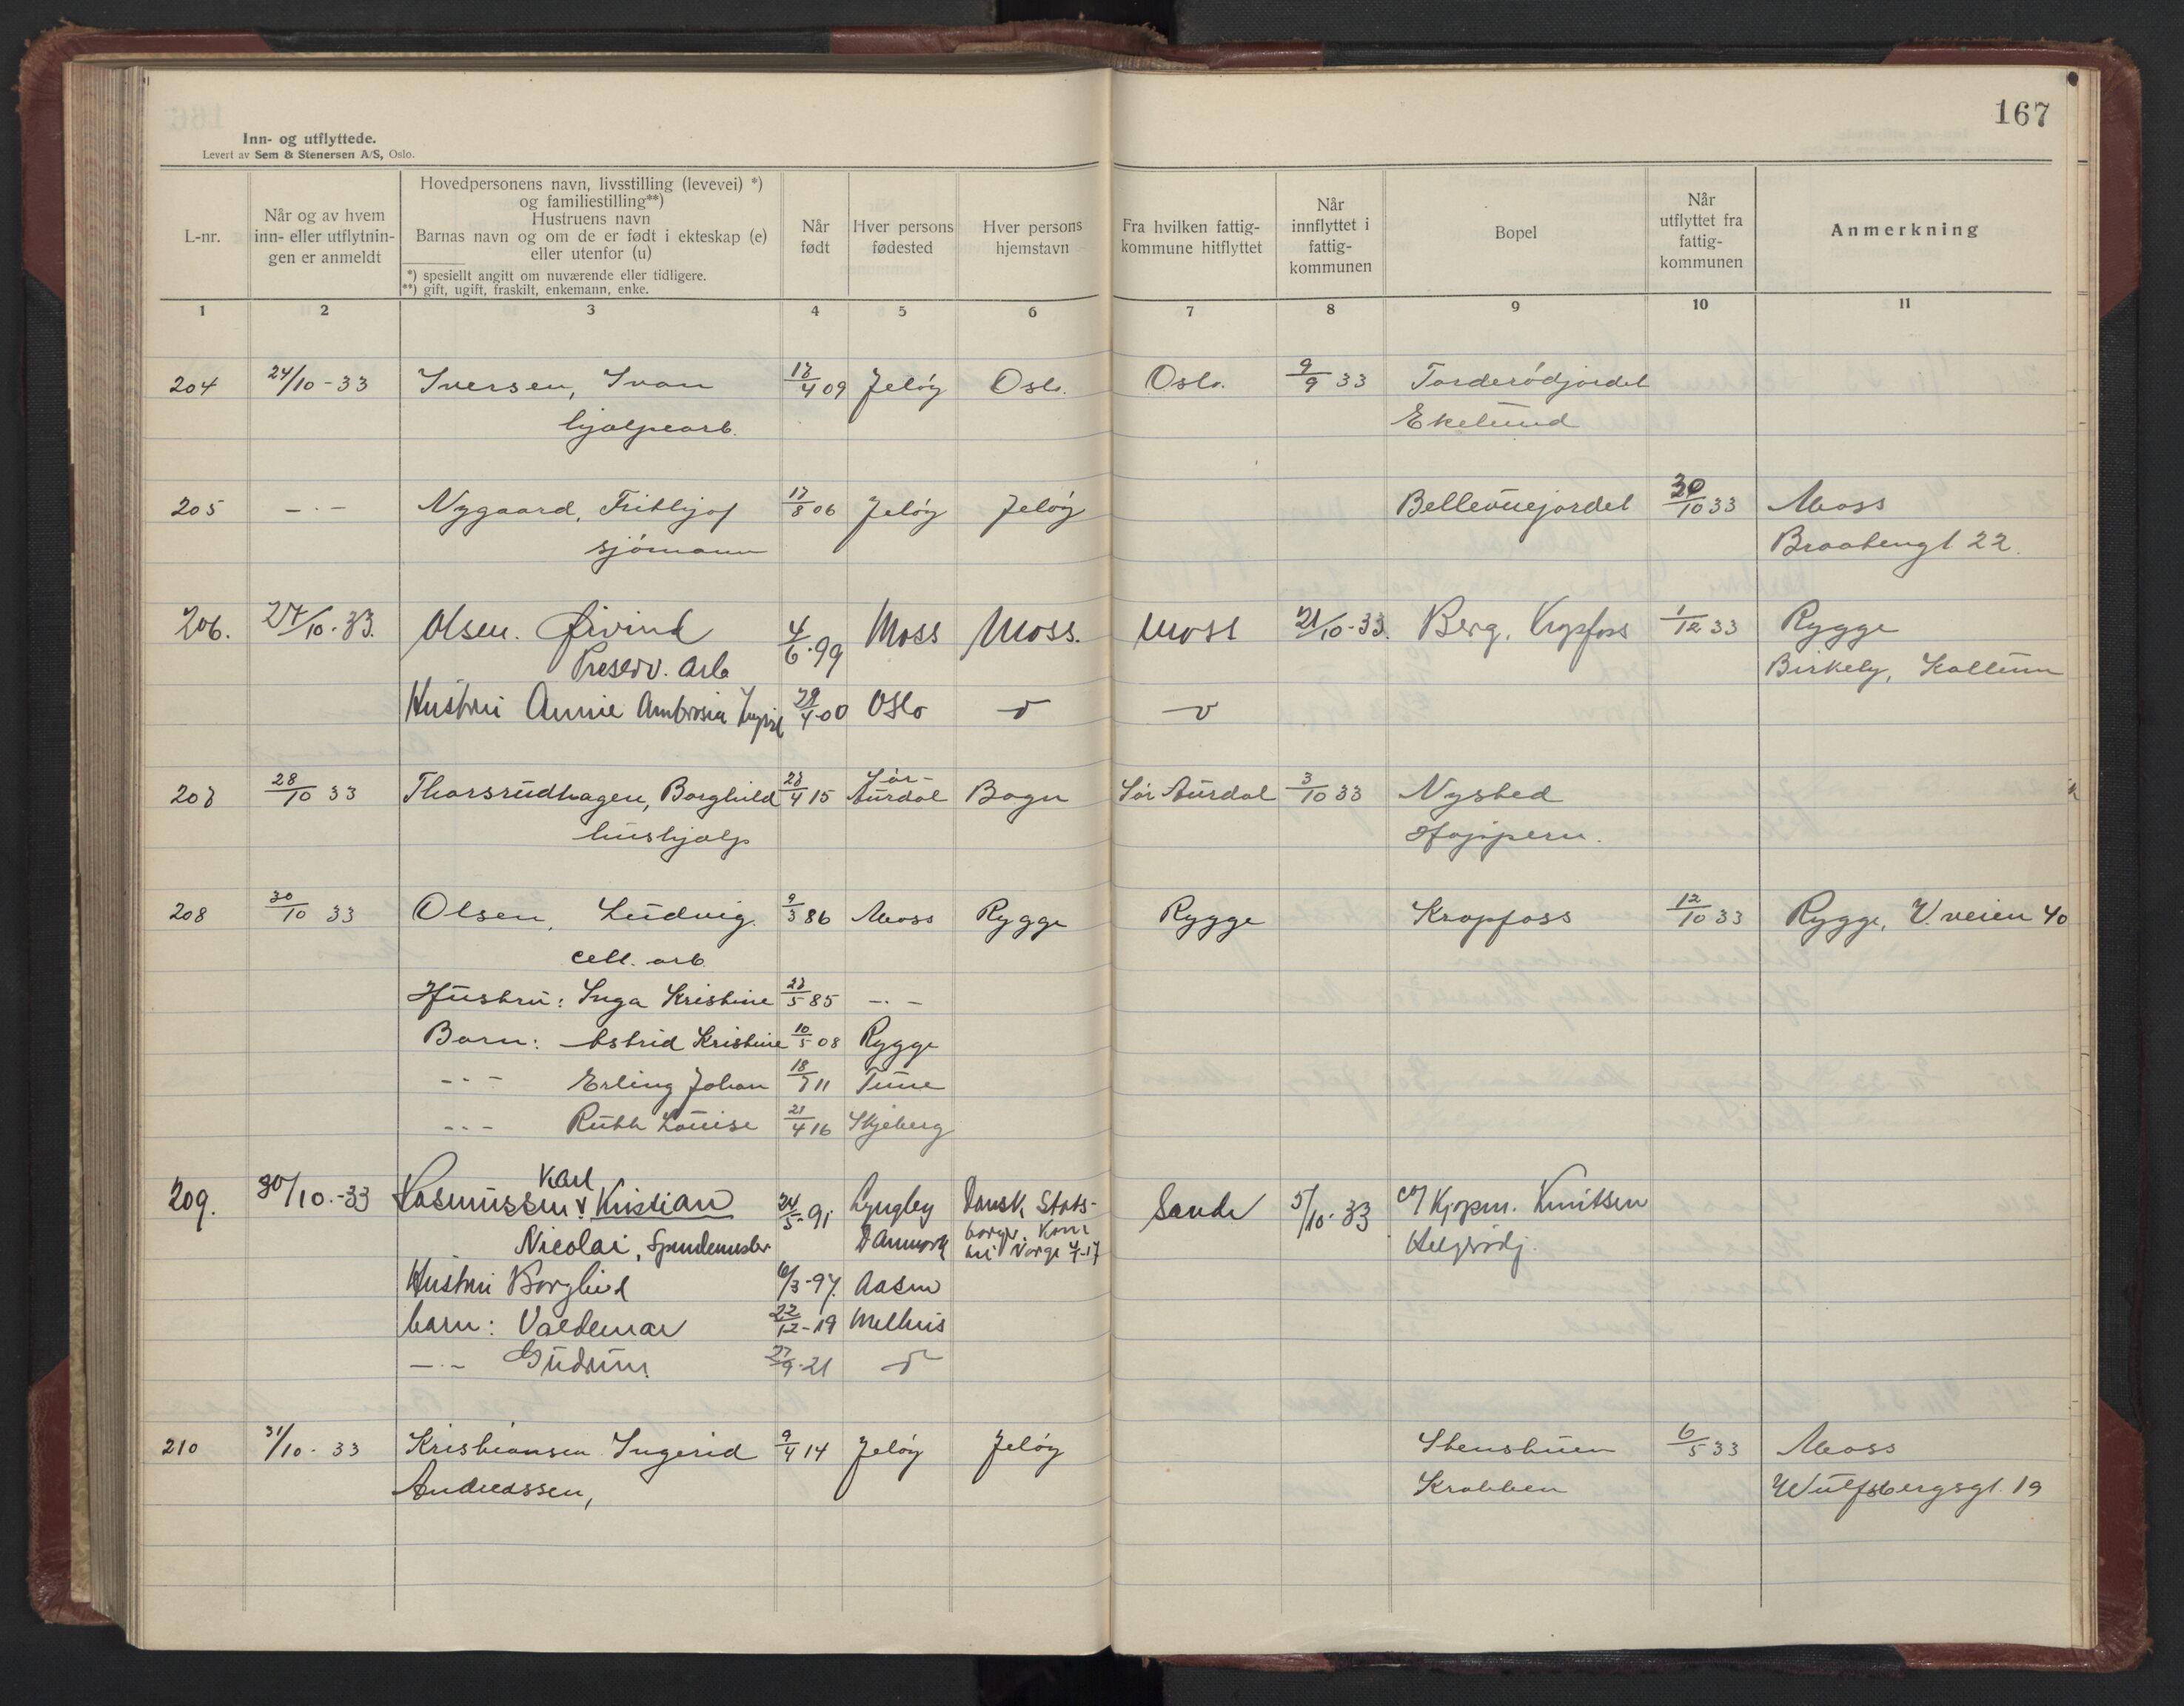 167
Inn- og utflyttede.
Levert av Sem & Stenersen A/S, Oslo.
L-nr.
Når og av hvem inn- eller utflytnin-gen er anmeldt
Hovedpersonens navn, livsstilling (levevei) *)
og familiestilling**)
Hustruens navn
Barnas navn og om de er født i ekteskap (e)
eller utenfor (u)
*) spesiellt angitt om nuværende eller tidligere.
**) gift, ugift, fraskilt, enkemann, enke.
Når født
Hver persons fødested
Hver persons hjemstavn
Fra hvilken fattig-kommune hitflyttet
Når innflyttet i fattig-kommunen
Bopel
Når utflyttet fra fattig-kommunen
Anmerkning
1 2 3 4 5 6 7 8 9 10 11
204 24/10-33 Iversen, Ivan 4 09 Jeløy Oslo. Oslo. 9/9 33 Torderødjordet
hjalpearb. Ekelund
205 -·- Nygaard, Frithjof 8 06 Jeløy Jeløy Bellevuejordet 30/10 33 Moss
sjømann Braatengt 22.
206. 27/10-33. Olsen. Øivind 4/6-99 Moss Moss. Moss 21/10-33. Berg, Kropfoss 1/12 33 Rygge
Preserv. arb Birkely, Kallum
Hustru Annie Ambrosia 4-00 Oslo
207 28/10 33 Thorsrudhagen, Borghild 4 15 Sør-Aurdal Bagn Sør Aurdal 3/10 33 Nysted
hushjalp Høijpern.
208 30/10 33 Olsen, Ludvig. 9/3 86 Moss Rygge Rygge Kropfoss 12/10 33 Rygge, V. veien 40
cell. arb
Hustru: Inga Kristine 5 85 -·-
Barn: Astrid Kristine 10/5 08 Rygge
-·- Erling Johan 18/7 11 Tune
-·- Ruth Louise 21/4 16 Skjeberg
Karl
209. 30/10.-33 Rasmussen Kristian 24/5-91 Lyngby Dansk Stats- Sande 5/10-33 c/o Kjøpm. Knutsen
Nicolai, Danmark borger. Kom
til Norge
Hustru Borghild 6/3-97. Aasen
barn: Valdemar 22/12-19 Melhus
-·- Gudrun. 27/9-21
210 31/10-33 Kristiansen Ingerid 9/4 14 Jeløy Jeløy Stenshuen 6/5 33 Moss
Andreassen, Krabben Wulfsbergsgt. 19